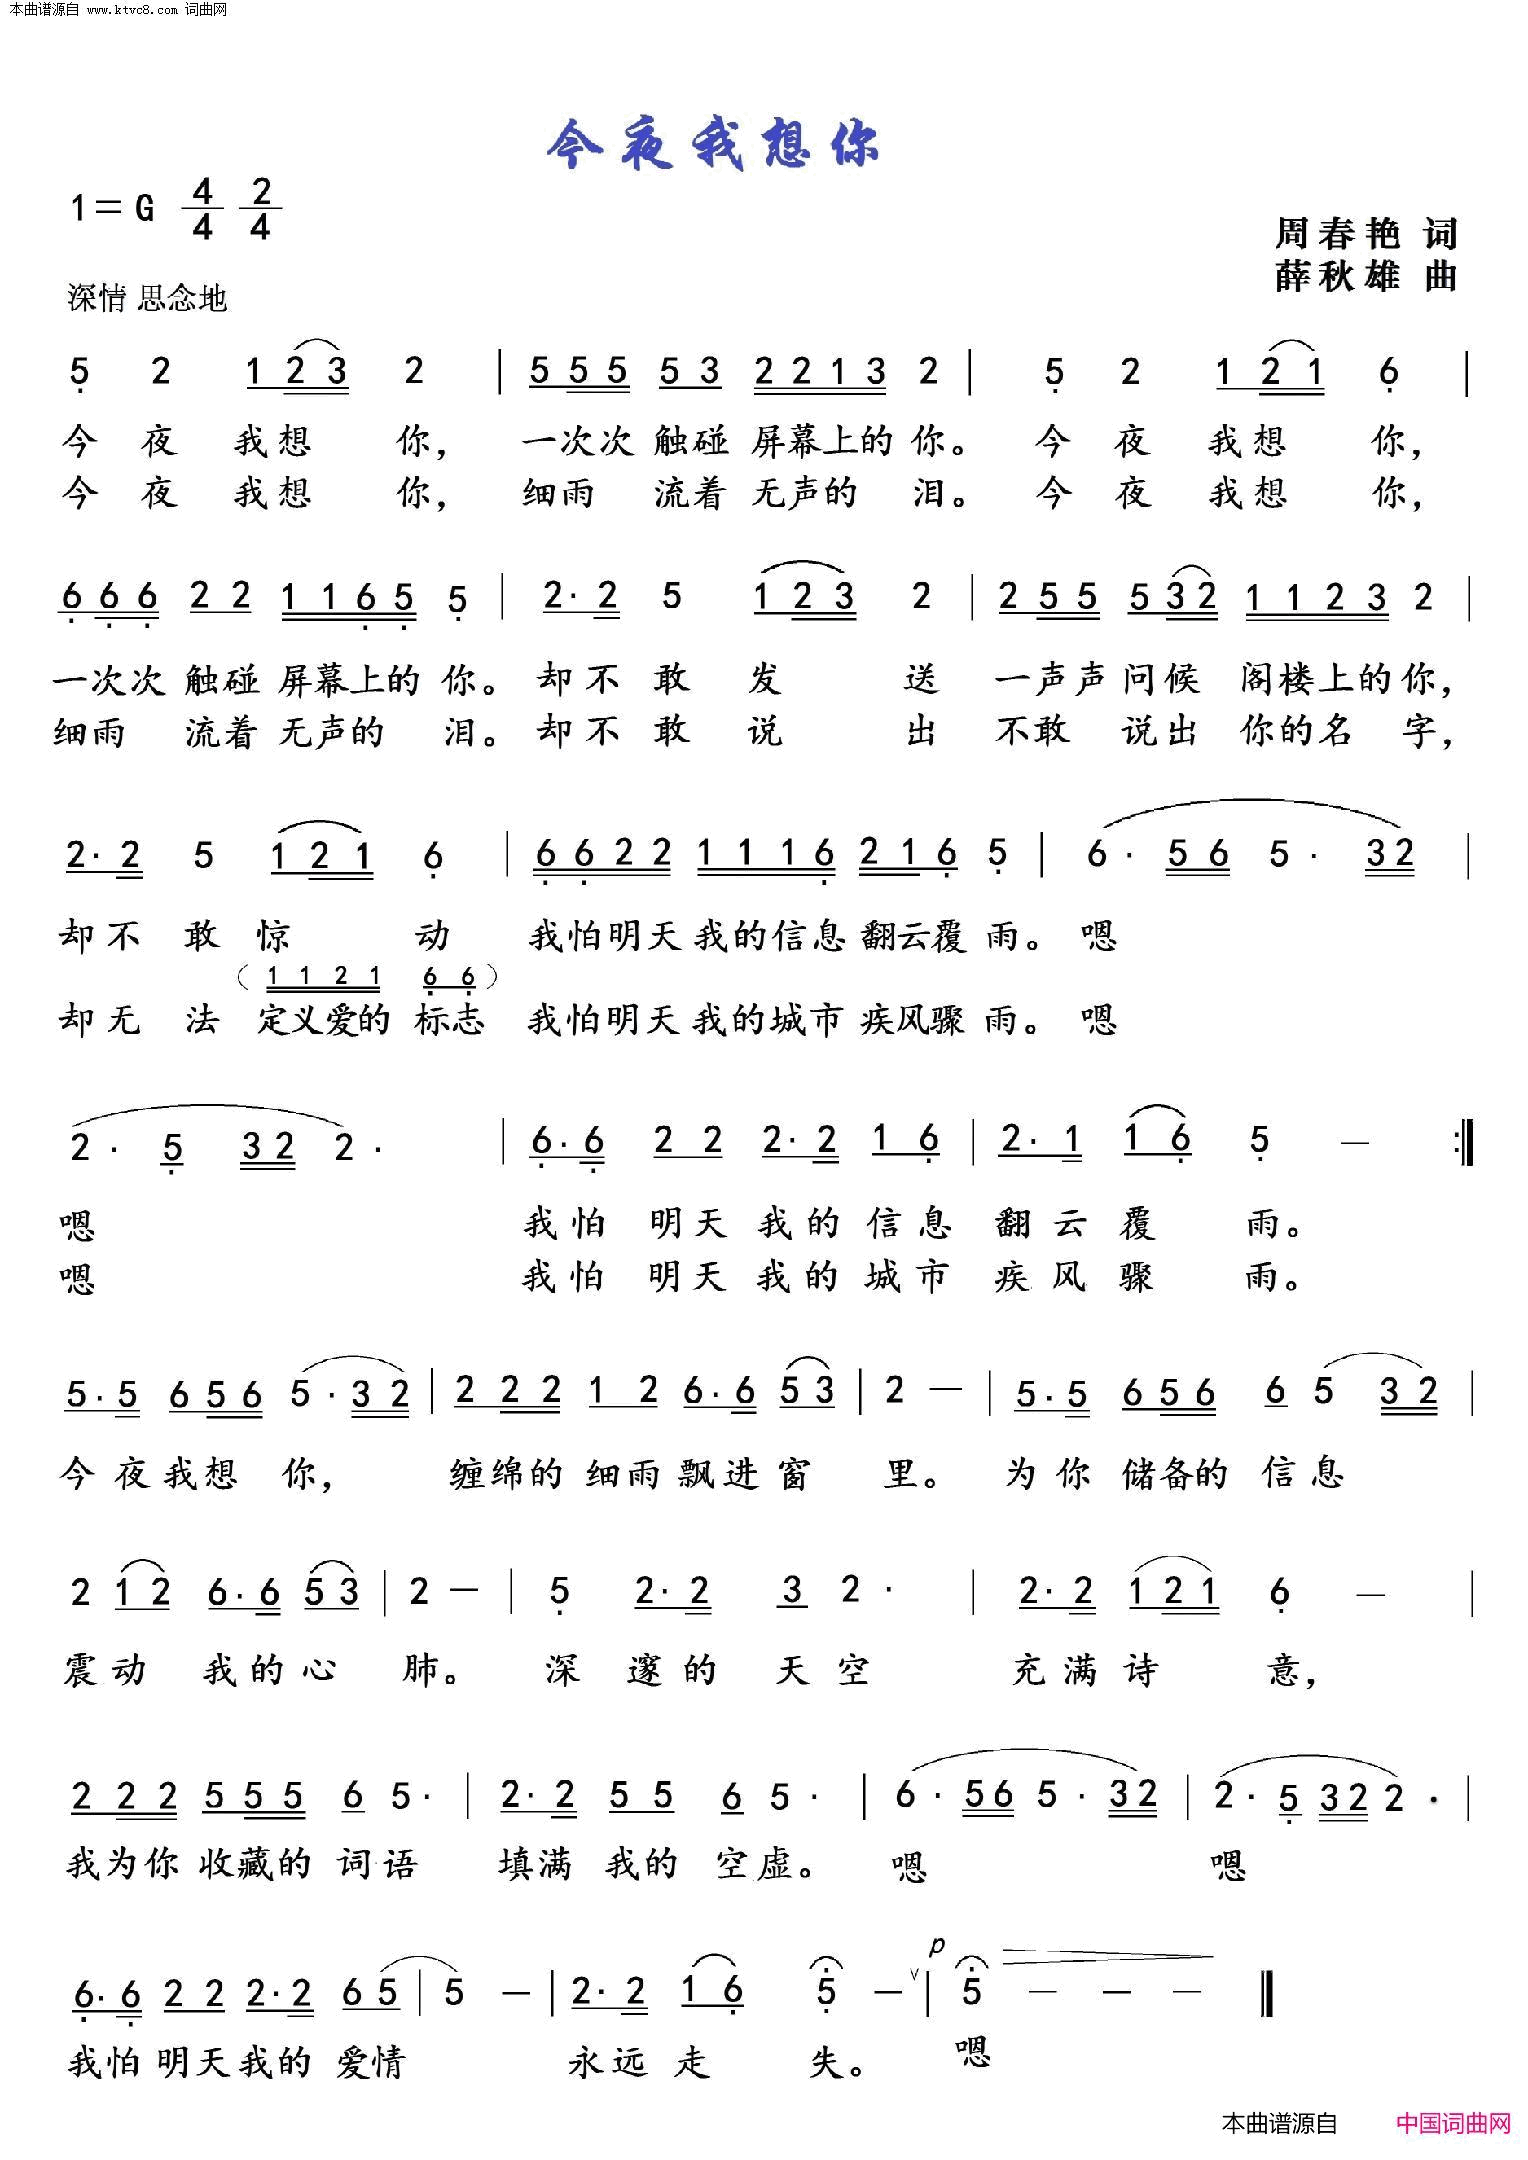 本曲谱源自 www.ktvc8.com 词曲网
今夜我想你
1=G 4/4 2/4
周春艳 词
薛秋雄 曲
深情 思念地
5 2 1 2 3 2 | 5 5 5 5 3 2 2 1 3 2 | 5 2 1 2 1 6 |
今 夜 我想 你, 一次次 触碰 屏幕上的 你。 今 夜 我想 你,
今 夜 我想 你, 细雨 流着 无声的 泪。 今 夜 我想 你,
6 6 6 2 2 1 1 6 5 5 | 2· 2 5 1 2 3 2 | 2 5 5 5 3 2 1 1 2 3 2 |
一次次 触碰 屏幕上的 你。 却不 敢 发 送 一声声 问候 阁楼上的你,
细雨 流着 无声的 泪。 却不 敢 说 出 不敢 说出 你的名 字,
2· 2 5 1 2 1 6 | 6 6 2 2 1 1 1 6 2 1 6 5 | 6· 5 6 5· 3 2 |
却不 敢 惊 动 我怕明天我的信息翻云覆 雨。 嗯
( 1 1 2 1 6 6 )
却无 法 定义爱的 标志 我怕明天我的城市 疾风骤 雨。 嗯
2· 5 3 2 2· | 6· 6 2 2 2· 2 1 6 | 2· 1 1 6 5 — :‖
嗯 我怕 明天 我的 信息 翻云 覆 雨。
嗯 我怕 明天 我的 城市 疾风 骤 雨。
5· 5 6 5 6 5· 3 2 | 2 2 2 1 2 6· 6 5 3 | 2 — | 5· 5 6 5 6 6 5 3 2 |
今夜我想 你, 缠绵的 细雨飘进窗 里。 为你 储备的 信息
2 1 2 6· 6 5 3 | 2 — | 5 2· 2 3 2· | 2· 2 1 2 1 6 — |
震动 我的心 肺。 深 邃的 天空 充满诗 意,
2 2 2 5 5 5 6 5· | 2· 2 5 5 6 5· | 6· 5 6 5· 3 2 | 2· 5 3 2 2· |
我为你 收藏的 词语 填满 我的 空虚。 嗯 嗯
p
6· 6 2 2 2· 2 6 5 | 5 — | 2· 2 1 6 5 — ∨ | 5 — — — ‖
我怕 明天我的 爱情 永远 走 失。 嗯
本曲谱源自 中国词曲网